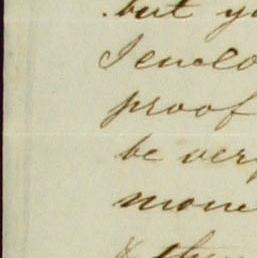 but yo
I enclo
proof
be very
mone
& then